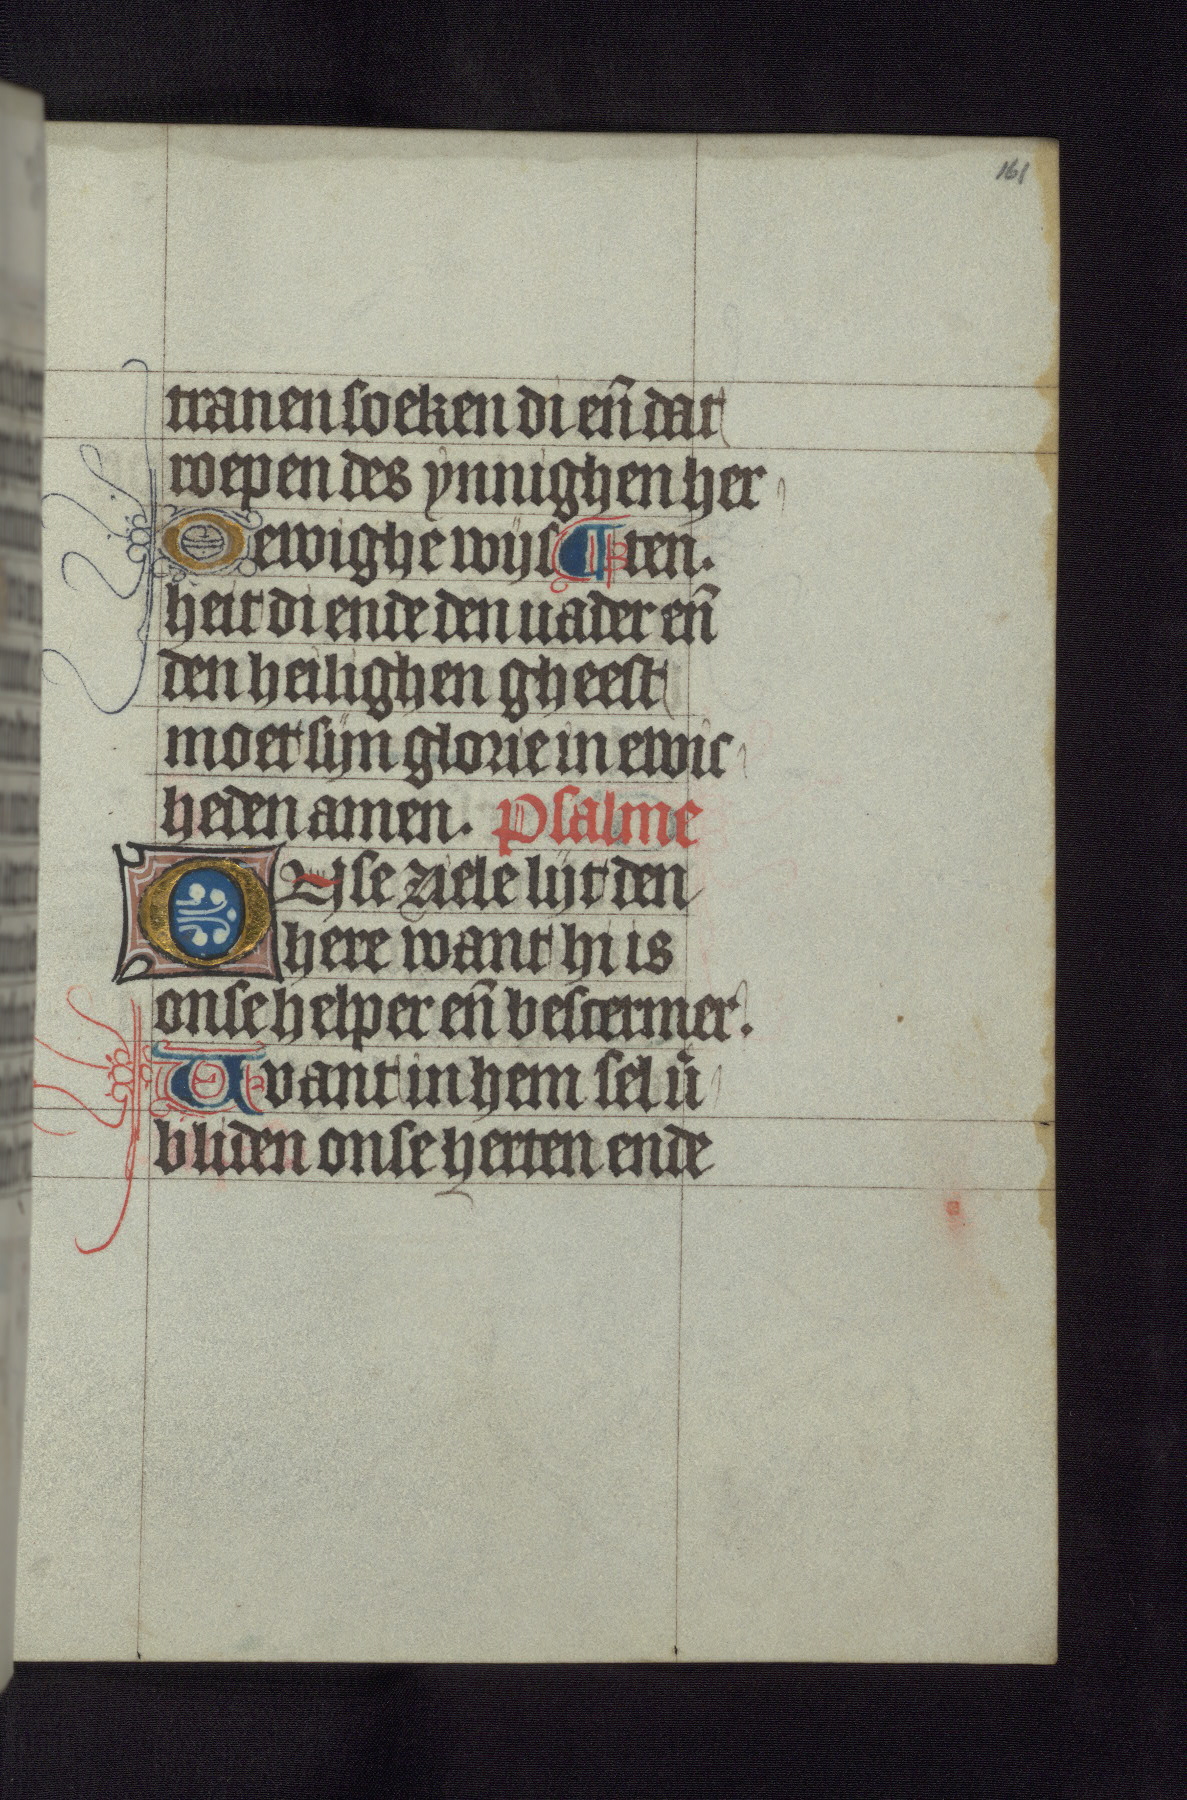 161
tranen soeken di en̄ dat
roepen des ynnighen her
O ewighe wijs ¶ ten.
heit di ende den uader en̄
den heilighen gheest
moet sijn glorie in ewic
heden amen. psalme
Onse ziele lijt den
here want hi is
onse helper en̄ bescermer.
Want in hem sel v̄
bliden onse herten ende